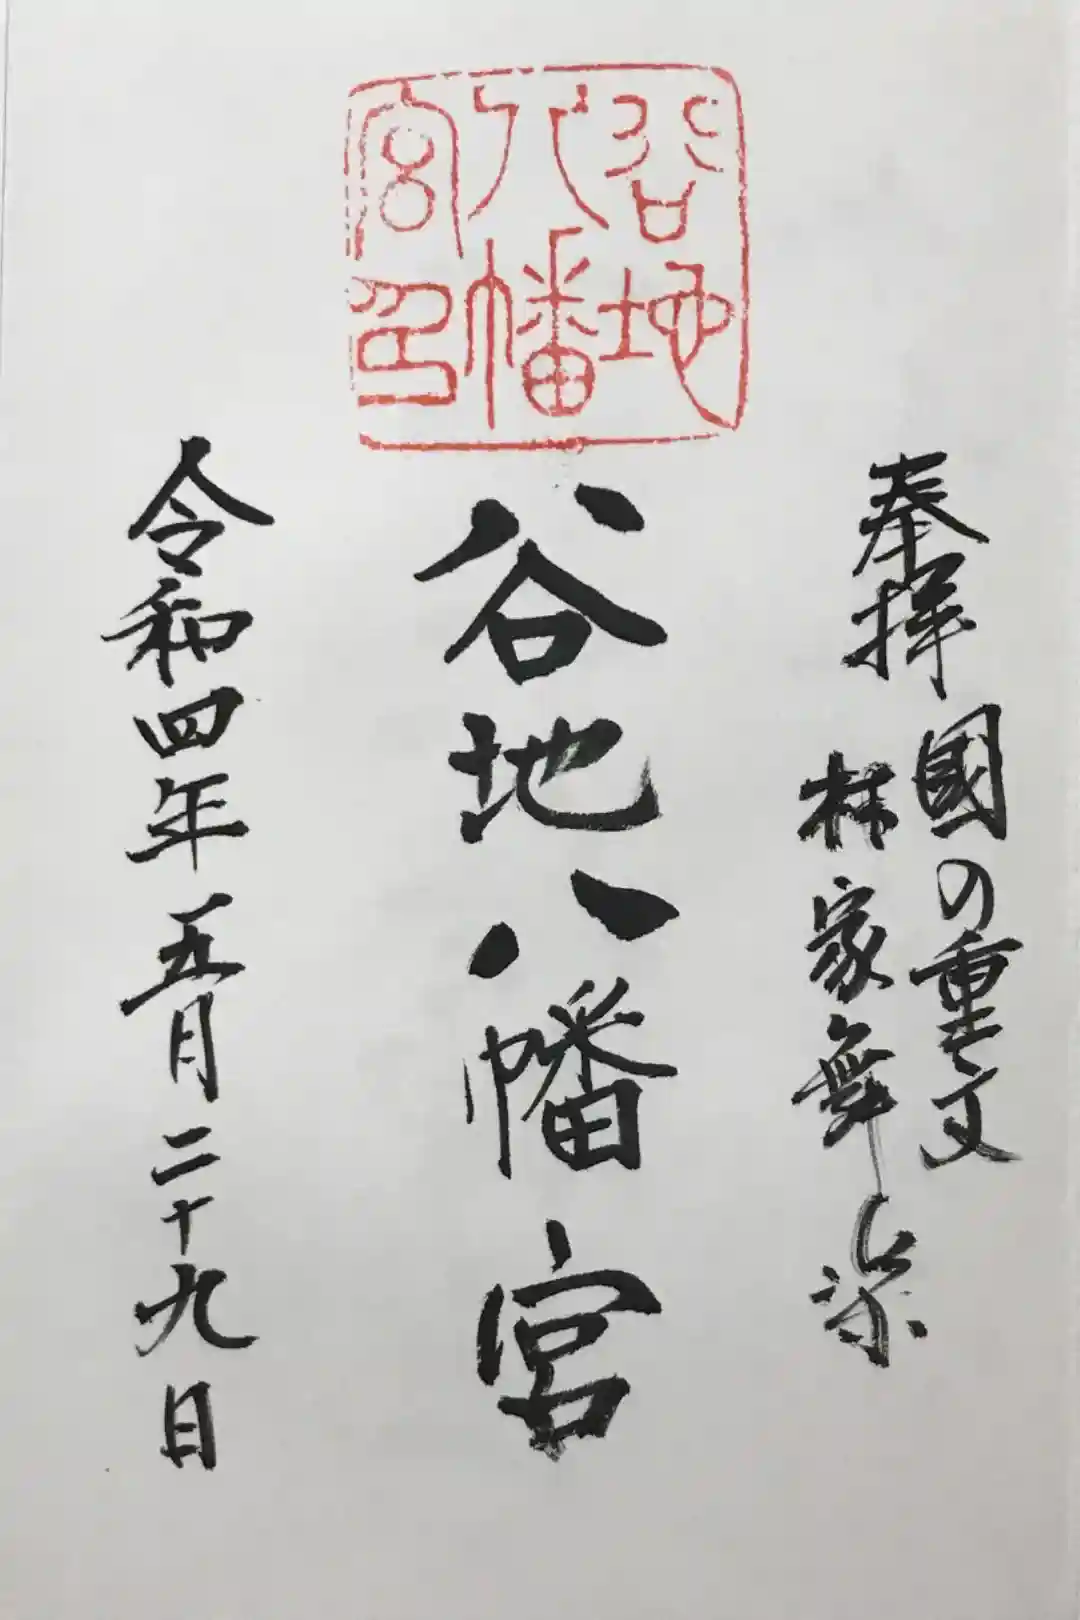 谷地
八幡
宮印
奉拝
國の重文
林家舞楽
谷地八幡宮
令和四年五月二十九日